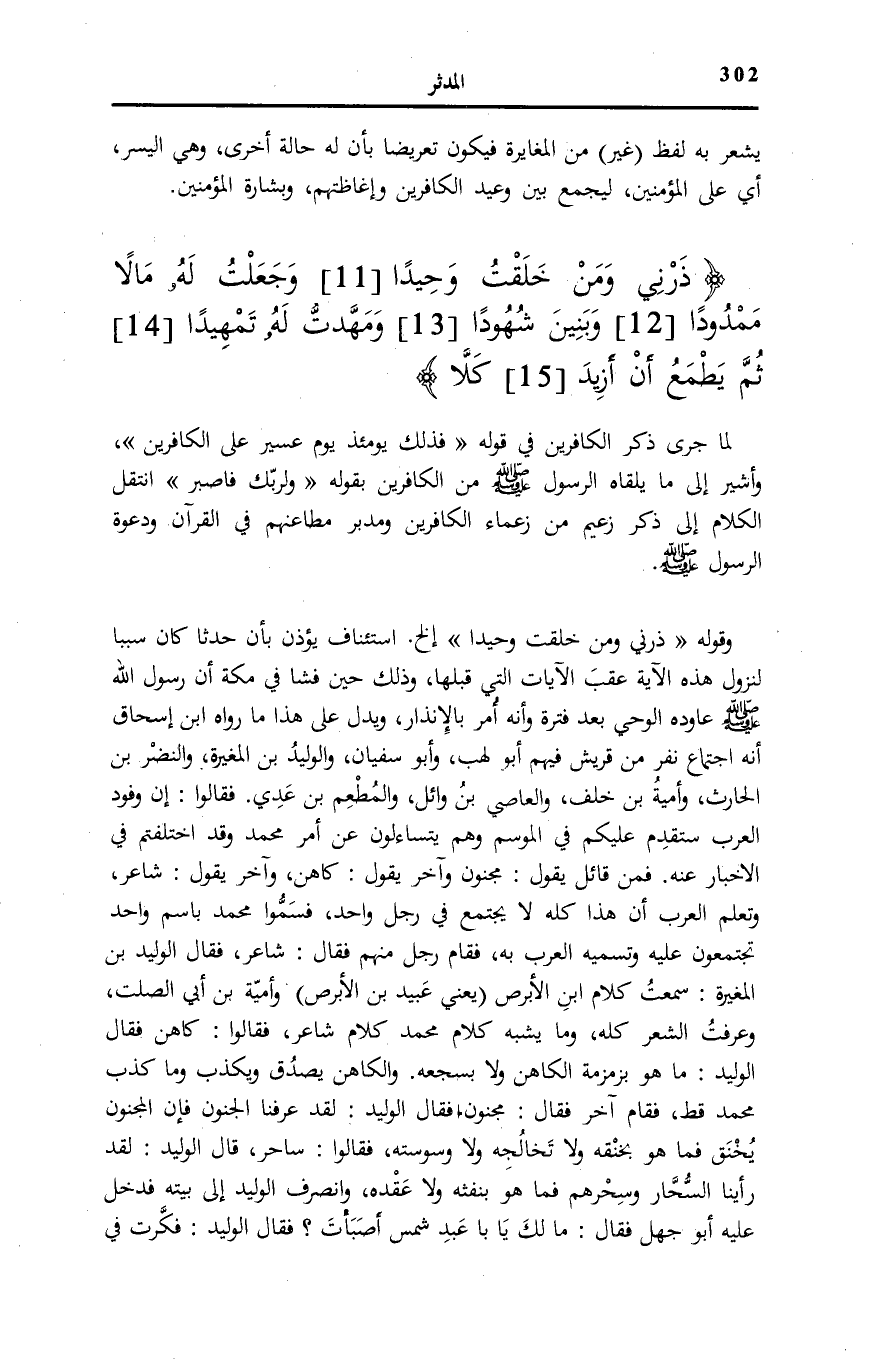 302
المدثر
يشعر به لفظ (غير) من المغايرة فيكون تعريضا بأن له حالة أخرى، وهي اليسر،
أي على المؤمنين، ليجمع بين وعيد الكافرين وإغاظتهم، وبشارة المؤمنين.
﴿ ذَرْنِي وَمَنْ خَلَقْتُ وَحِيدًا [11] وَجَعَلْتُ لَهُۥ مَالًا
مَمْدُودًا [12] وَبَنِينَ شُهُودًا [13] وَمَهَّدتُّ لَهُۥ تَمْهِيدًا [14]
ثُمَّ يَطْمَعُ أَنْ أَزِيدَ [15] كَلَّا ﴾
لما جرى ذكر الكافرين في قوله « فذلك يومئذ يوم عسير على الكافرين »،
وأشير إلى ما يلقاه الرسول ﷺ من الكافرين بقوله « ولربّك فاصبر » انتقل
الكلام إلى ذكر زعيم من زعماء الكافرين ومدبر مطاعنهم في القرآن ودعوة
الرسول ﷺ.
وقوله « ذرني ومن خلقت وحيدا » إلخ. استئناف يؤذن بأن حدثا كان سببا
لنزول هذه الآية عقبَ الآيات التي قبلها، وذلك حين فشا في مكة أن رسول الله
ﷺ عاوده الوحي بعد فترة وأنه أُمر بالإنذار، ويدل على هذا ما رواه ابن إسحاق
أنه اجتماع نفر من قريش فيهم أبو لهب، وأبو سفيان، والوليدُ بن المغيرة، والنضْر بن
الحارث، وأميةُ بن خلف، والعاصي بنُ وائل، والمُطْعِم بن عَدِي. فقالوا : إن وفود
العرب ستقدِم عليكم في الموسم وهم يتساءلون عن أمر محمد وقد اختلفتم في
الاخبار عنه. فمن قائل يقول : مجنون وآخر يقول : كاهن، وآخر يقول : شاعر،
وتعلم العرب أن هذا كله لا يجتمع في رجل واحد، فسَمُّوا محمد باسم واحد
تجتمعون عليه وتسميه العرب به، فقام رجل منهم فقال : شاعر، فقال الوليد بن
المغيرة : سمعتُ كلام ابنِ الأبرص (يعني عَبيد بن الأبرص) وأميّة بن أبي الصلت،
وعرفتُ الشعر كله، وما يشبه كلام محمد كلام شاعر، فقالوا : كاهن فقال
الوليد : ما هو بزمزمة الكاهن ولا بسجعه. والكاهن يصدُق ويكذب وما كذب
محمد قط، فقام آخر فقال : مجنون، فقال الوليد : لقد عرفنا الجنون فإن المجنون
يُخْنَق فما هو بخنْقه ولا تَخالُجه ولا وسوسته، فقالوا : ساحر، قال الوليد : لقد
رأينا السُّحَّار وسِحْرهم فما هو بنفثه ولا عَقْده، وانصرف الوليد إلى بيته فدخل
عليه أبو جهل فقال : ما لكَ يَا با عَبدِ شمس أصَبَأْتَ ؟ فقال الوليد : فكَّرت في